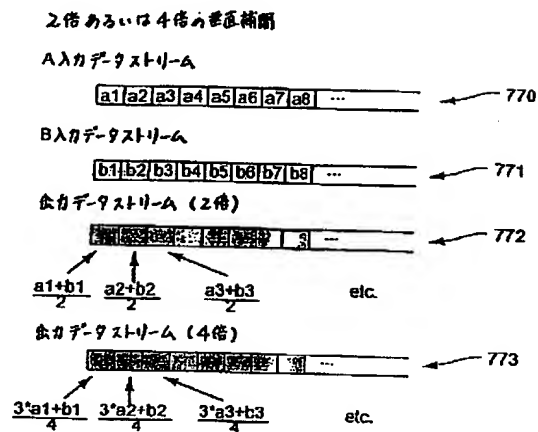 2倍あるいは4倍の垂直補間
A入力データストリーム
a1 a2 a3 a4 a5 a6 a7 a8 ... 770
B入力データストリーム
b1 b2 b3 b4 b5 b6 b7 b8 ... 771
出力データストリーム (2倍)
... 772
a1+b1 a2+b2 a3+b3
2 2 2 etc.
出力データストリーム (4倍)
... 773
3*a1+b1 3*a2+b2 3*a3+b3
4 4 4 etc.